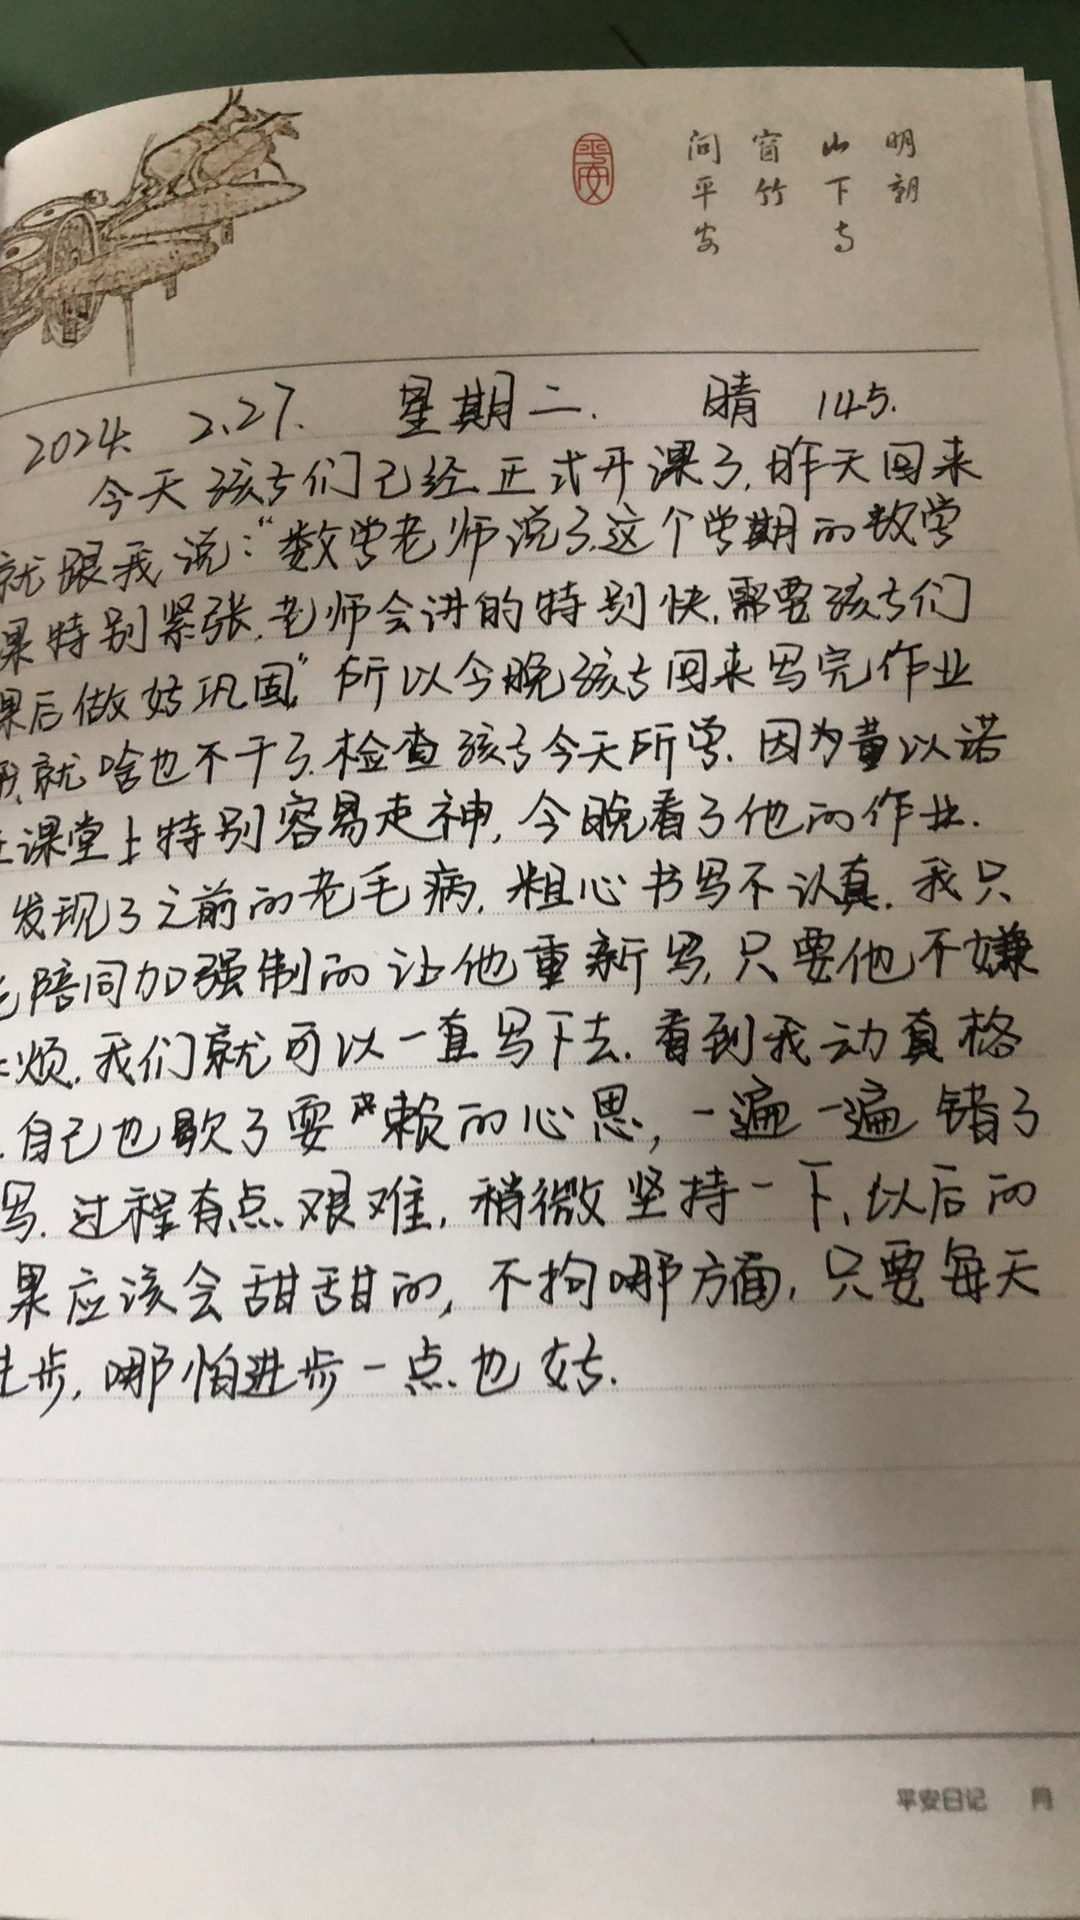 明朝
山下去
窗竹
问平安
平安
2024. 2.27. 星期二. 晴 145.
今天孩子们已经正式开课了,昨天回来
就跟我说:“数学老师说了,这个学期的数学
课特别紧张.老师会讲的特别快,需要孩子们
课后做好巩固”所以今晚孩子回来写完作业
就啥也不干了.检查孩子今天所学.因为黄以诺
在课堂上特别容易走神,今晚看了他的作业.
发现了之前的老毛病,粗心书写不认真.我只
陪同加强制的让他重新写,只要他不嫌
烦.我们就可以一直写下去.看到我动真格
.自己也歇了耍赖的心思,一遍一遍错了
写.过程有点艰难,稍微坚持一下,以后的
果应该会甜甜的,不拘哪方面,只要每天
进步,哪怕进步一点也好.
平安日记 月